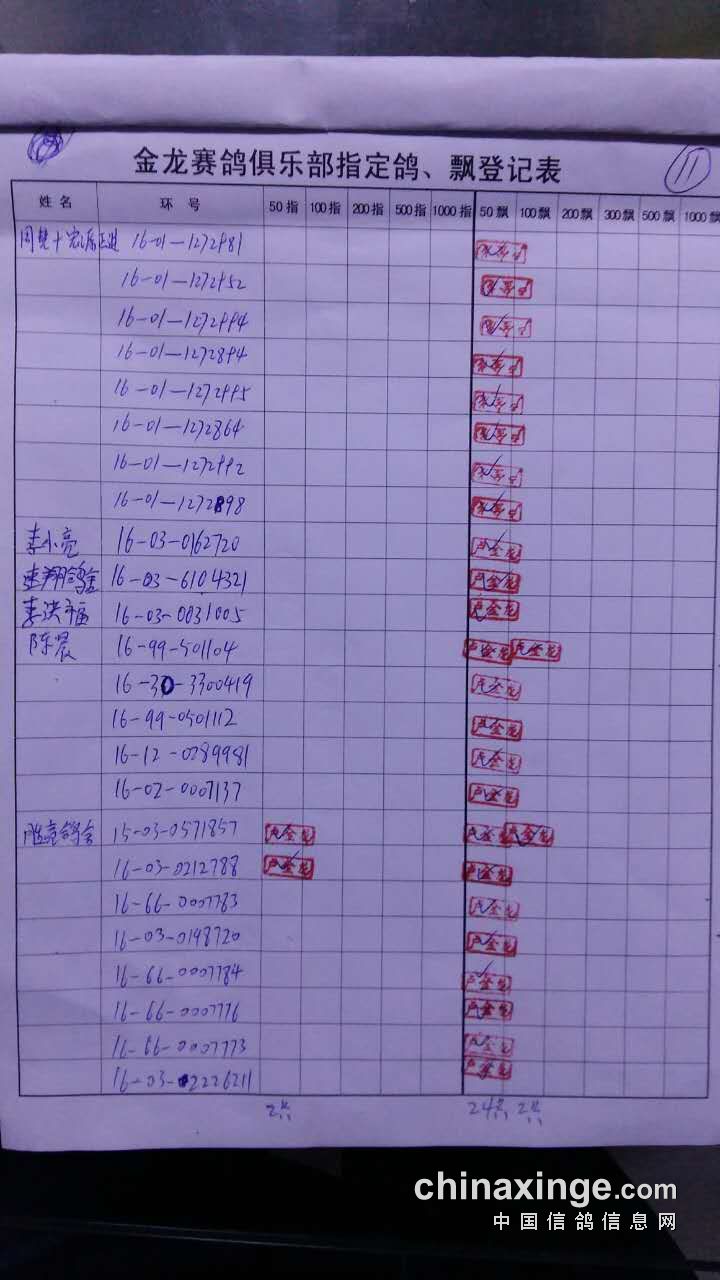 金龙赛鸽俱乐部指定鸽、飘登记表
11
姓名 环号 50指 100指 200指 500指 1000指 50飘 100飘 200飘 300飘 500飘 1000飘
16-01-1272981
16-01-1272952
16-01-1272994
16-01-1272894
16-01-1272995
16-01-1272864
16-01-1272992
16-01-1272898
李小亮 16-03-0162720
速翔鸽舍 16-03-6104321 卢金龙
李洪福 16-03-0031005 卢金龙
陈晨 16-99-501104 卢金龙 卢金龙
16-30-3300419 卢金龙
16-99-0501112 卢金龙
16-12-0289981 卢金龙
16-02-0007137 卢金龙
鸽舍 15-03-0571857 卢金龙 卢金龙 卢金龙
16-03-0212788 卢金龙 卢金龙
16-66-0007783 卢金龙
16-03-0198720 卢金龙
16-66-0007784 卢金龙
16-66-0007776 卢金龙
16-66-0007773 卢金龙
16-03-2226211 卢金龙
2 24 2
chinaxinge.com
中国信鸽信息网